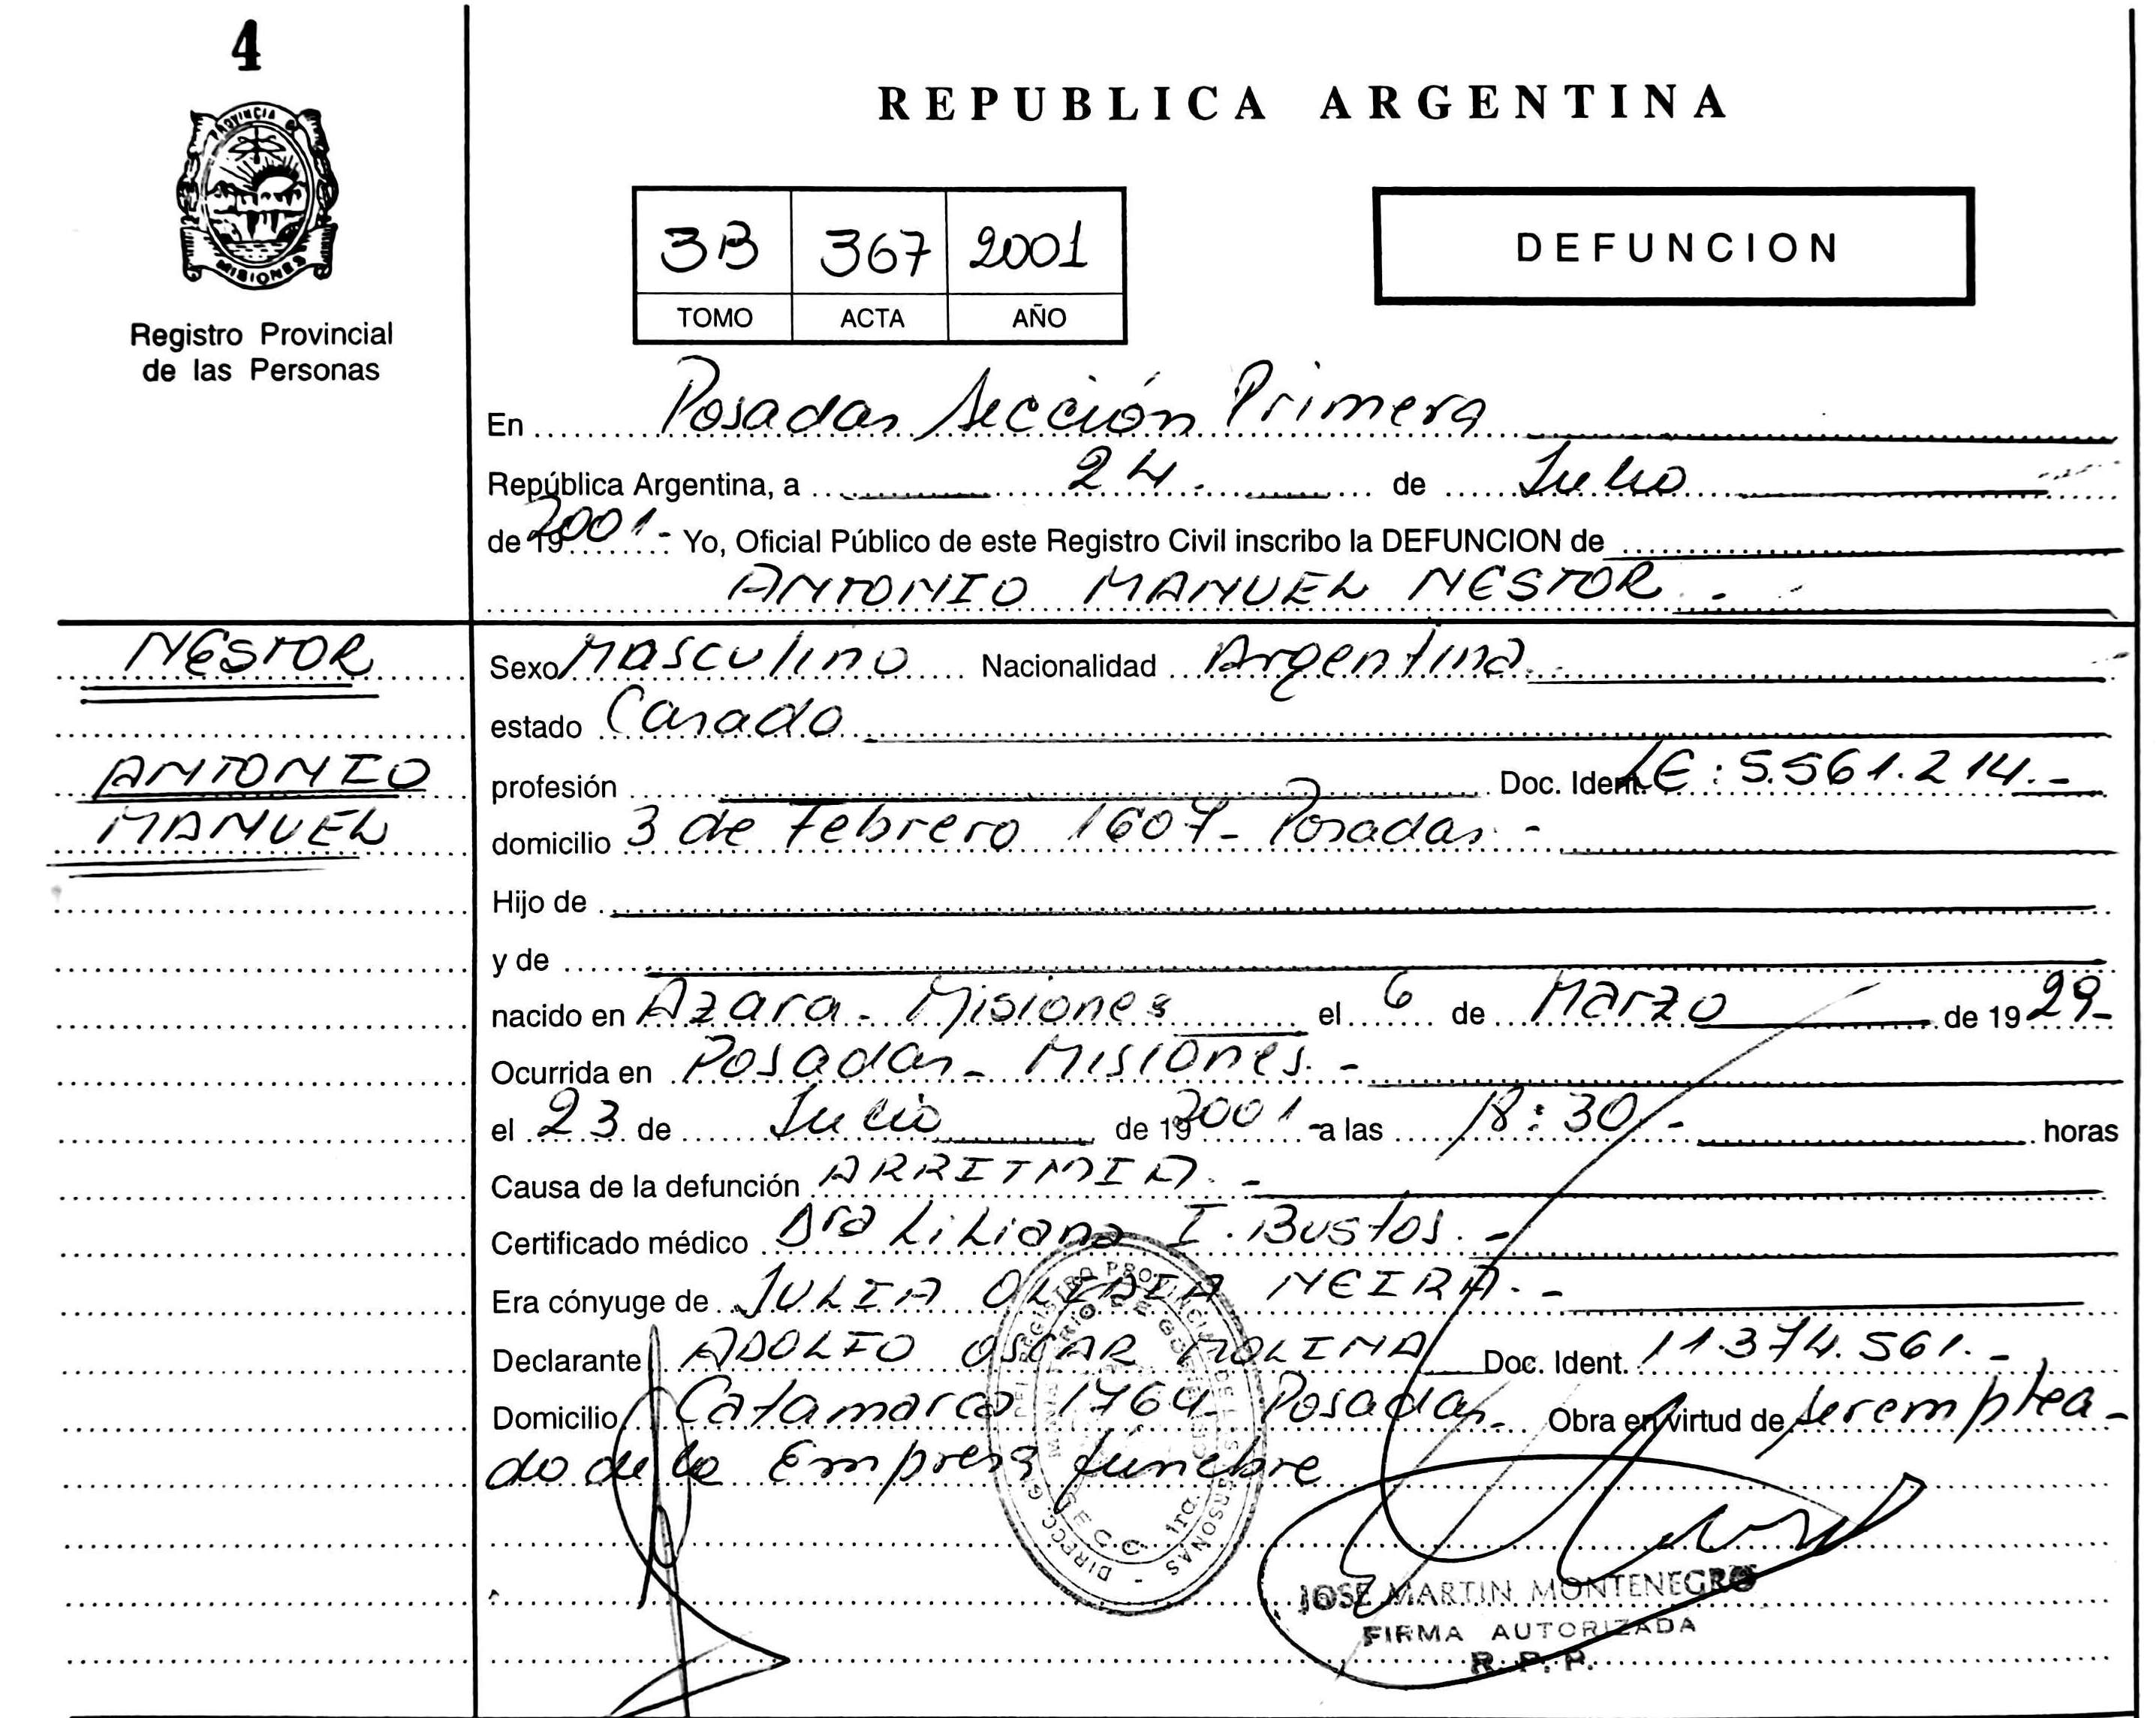 4
REPUBLICA ARGENTINA
PROVINCIA D
MISIONES
Registro Provincial
de las Personas
3B 367 2001
TOMO ACTA AÑO
DEFUNCION
En Posadas Sección Primera
República Argentina, a 24.- de Julio
de 19 2001.- Yo, Oficial Público de este Registro Civil inscribo la DEFUNCION de
ANTONIO MANUEL NESTOR.-
NESTOR
ANTONIO
MANUEL
Sexo Masculino Nacionalidad Argentina.
estado Casado
profesión Doc. Ident. LE: 5.561.214.-
domicilio 3 de Febrero 1607- Posadas.-
Hijo de
y de
nacido en Azara- Misiones el 6 de Marzo de 19 29-
Ocurrida en Posadas- Misiones.-
el 23 de Julio de 19 2001 - a las 18:30.- horas
Causa de la defunción ARRITMIA.-
Certificado médico Dra Liliana I. Bustos.-
Era cónyuge de JULIA NEIRA.-
Declarante ADOLFO OSCAR MOLINA Doc. Ident. 11.374.561.-
Domicilio Catamarca 1764 Posadas- Obra en virtud de ser emplea-
do de la Empresa fúnebre
JOSE MARTIN MONTENEGRO
FIRMA AUTORIZADA
R. P. P.